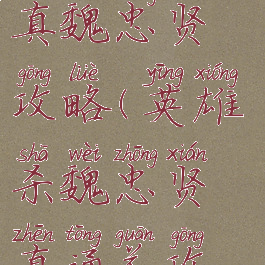 真魏忠贤
gōng lüè yīng xióng
攻略(英雄
shā wèi zhōng xián
杀魏忠贤
zhēn tōng guān gōng
真通关攻